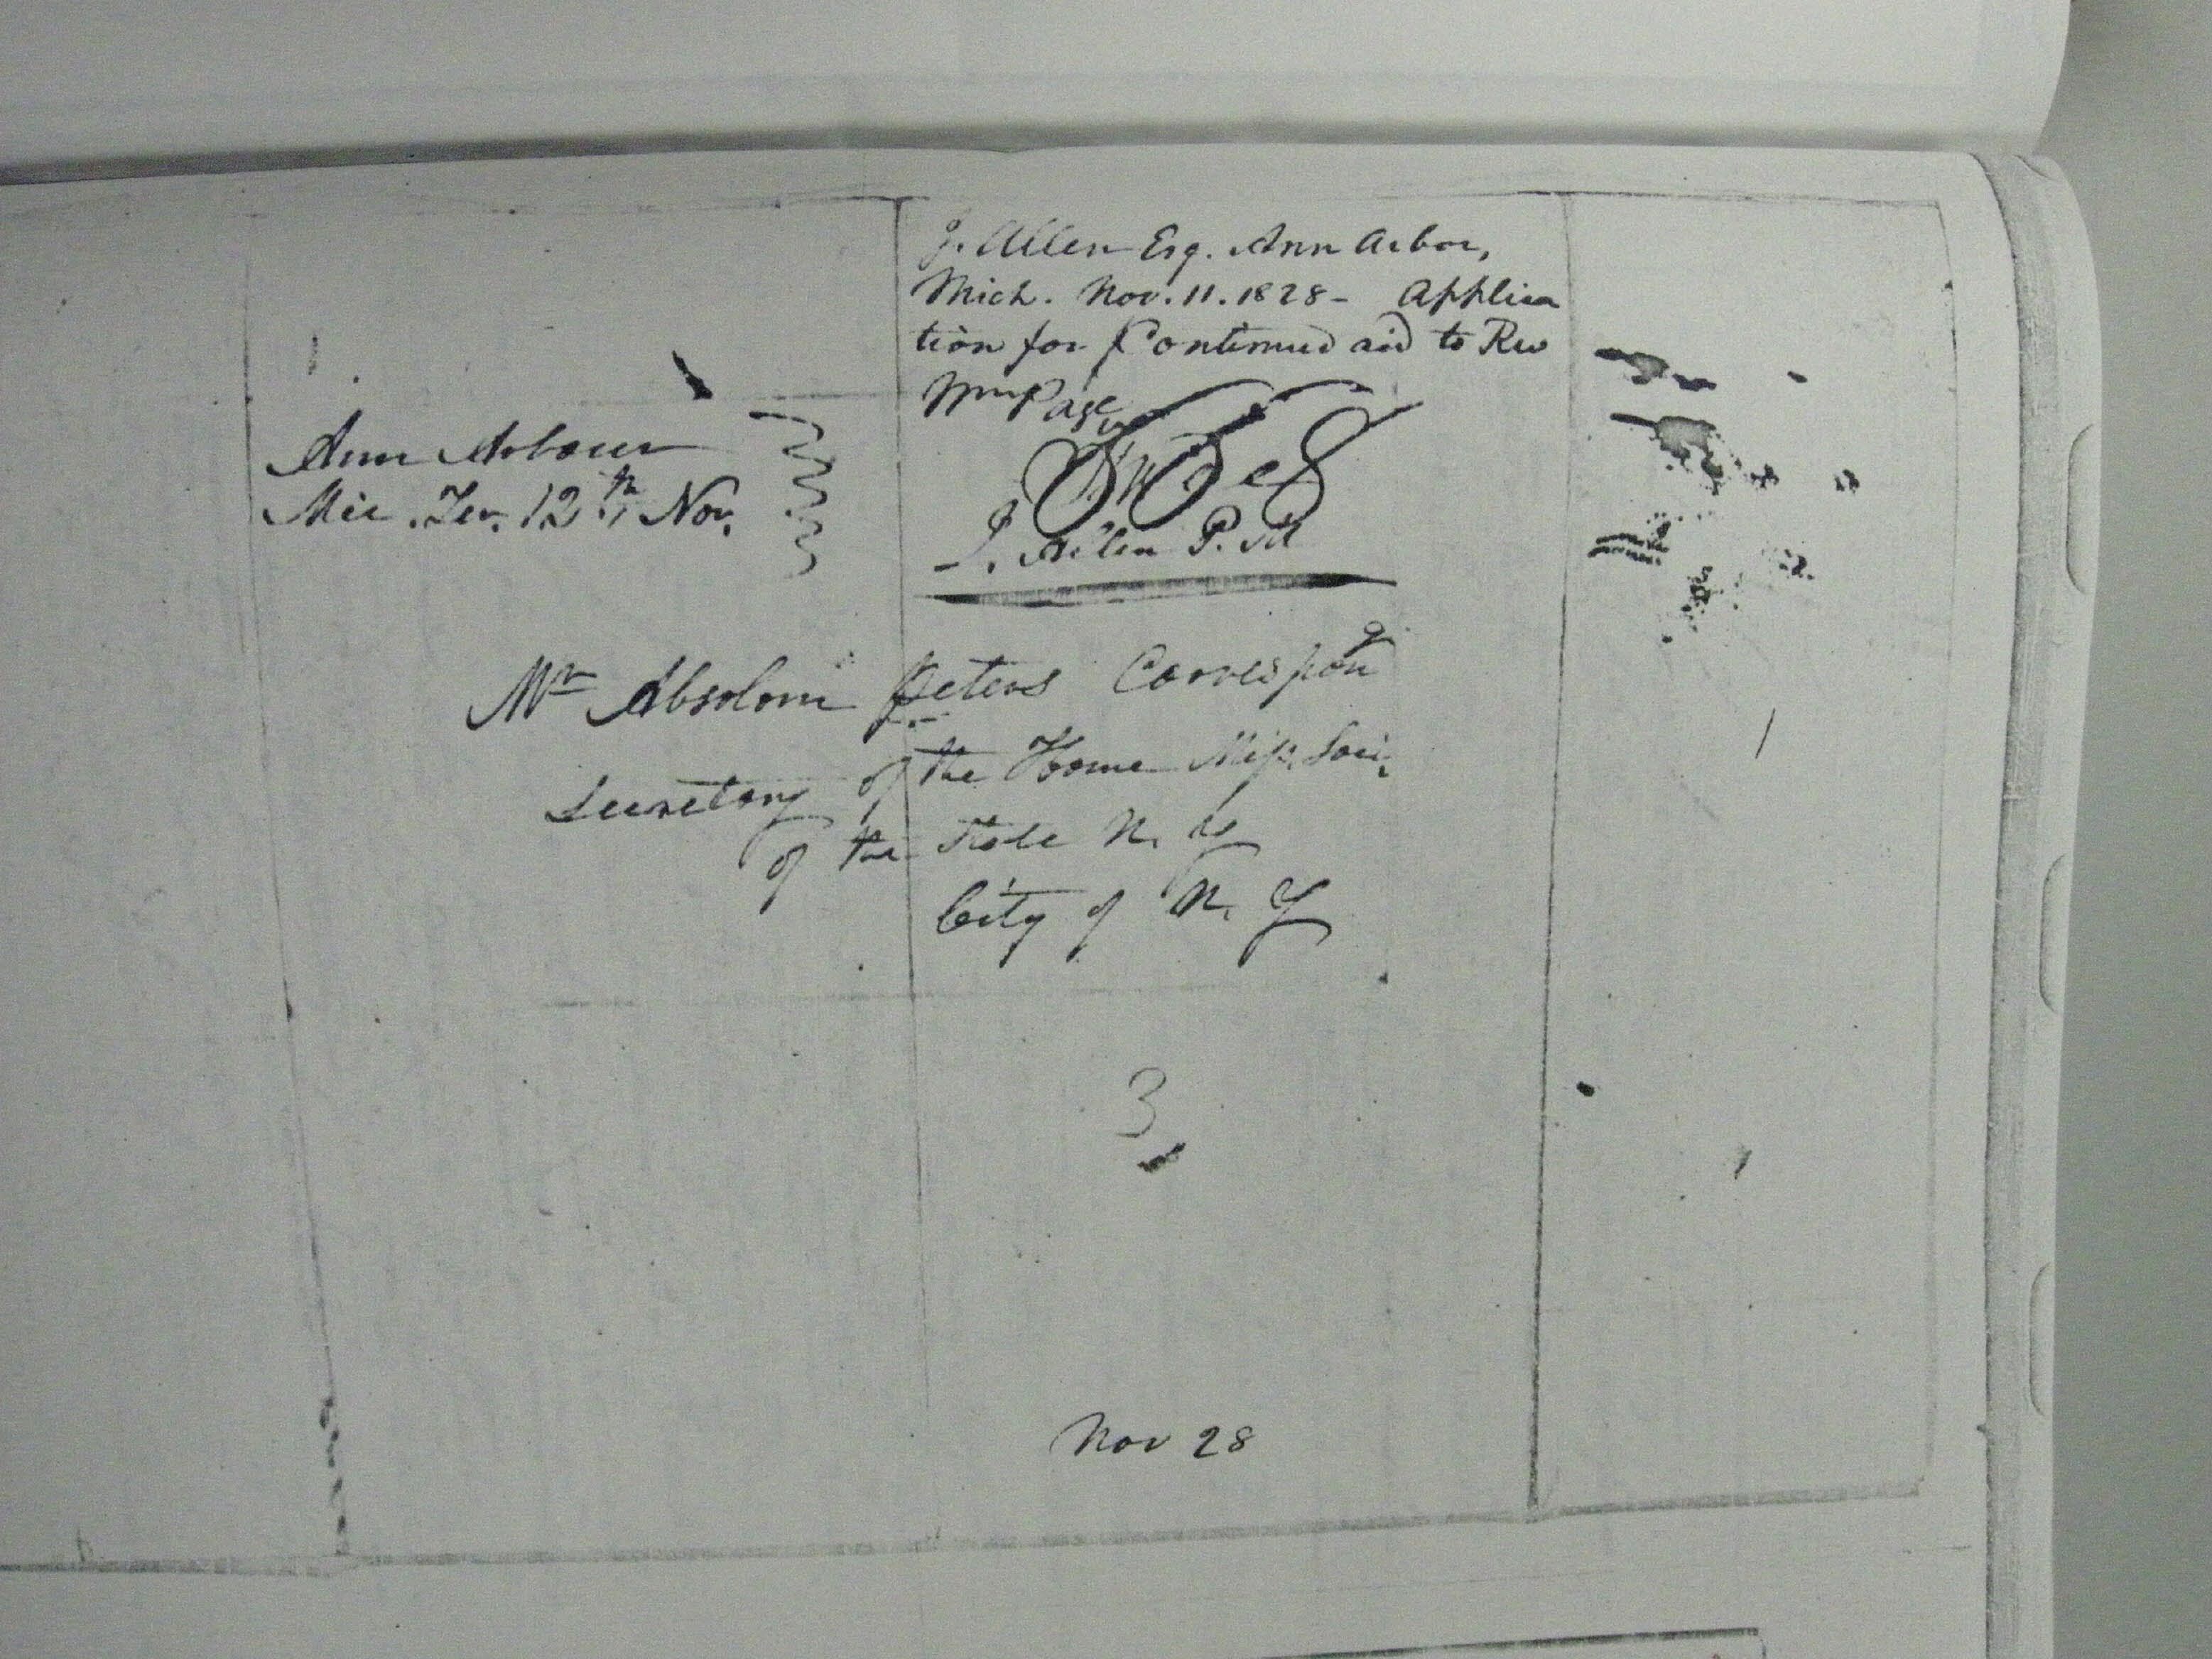 J. Allen Esq. Ann Arbor,
Mich. Nov. 11. 1828- Applica
tion for Continued aid to Rev
Wm Page
Free
J. Allen P. M
Ann Arbour
Mic. Ter. 12th Nov.
Mr Absolom Peters Correspong
Secretary of the Home Miss. Soci.
of the State N. Y
City of N. Y
3
Nov 28